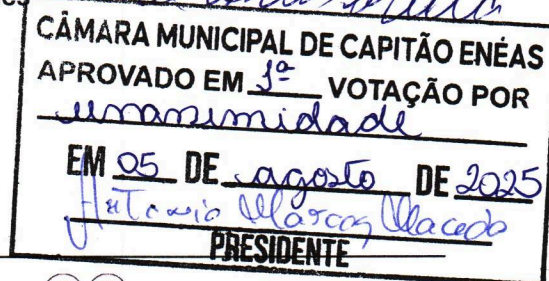 CÂMARA MUNICIPAL DE CAPITÃO ENÉAS
APROVADO EM 1ª VOTAÇÃO POR
unanimidade
EM 05 DE agosto DE 2025
Antonio Marcos Macedo
PRESIDENTE